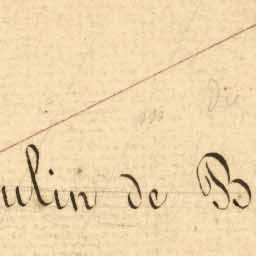 ulin de B